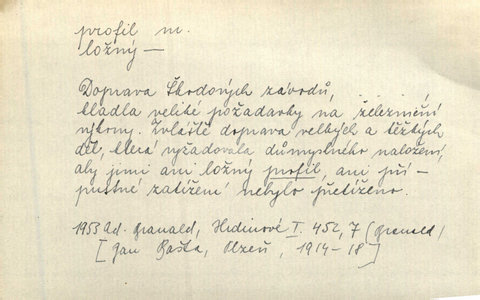 profil m.
ložný —
Doprava Škodových závodů,
kladla veliké požadavky na železniční
výkony. Zvláště doprava velkých a těžkých
děl, která vyžadovala důmyslného naložení,
aby jimi ani ložný profil, ani pří-
pustné zatížení nebylo přetíženo.
1953 Ad. Branald, Hrdinové I. 452, 7 (Branald/
[Jan Bašta, Plzeň, 1914–18]